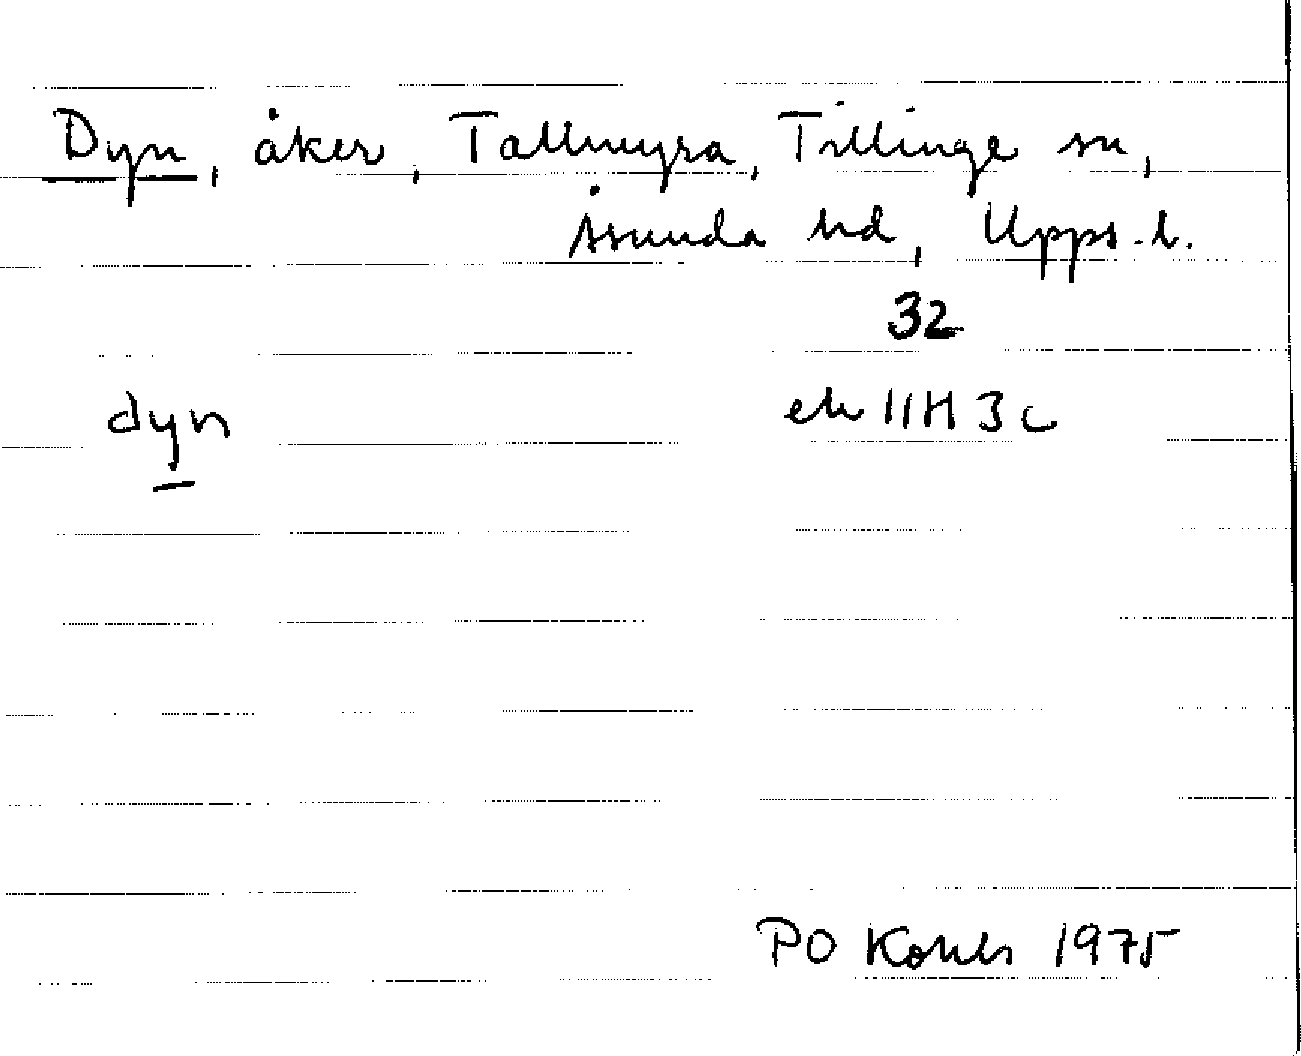 Dyn, åker, Tallmyra, Tillinge sn,
Åsunda hd, Upps. l.
32
dyn ek 11H 3c
PO 1975